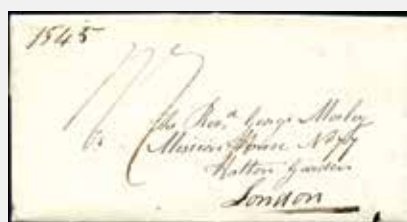 1545
The Revd. George Morley
Mission House No. 77
Hatton Garden
London